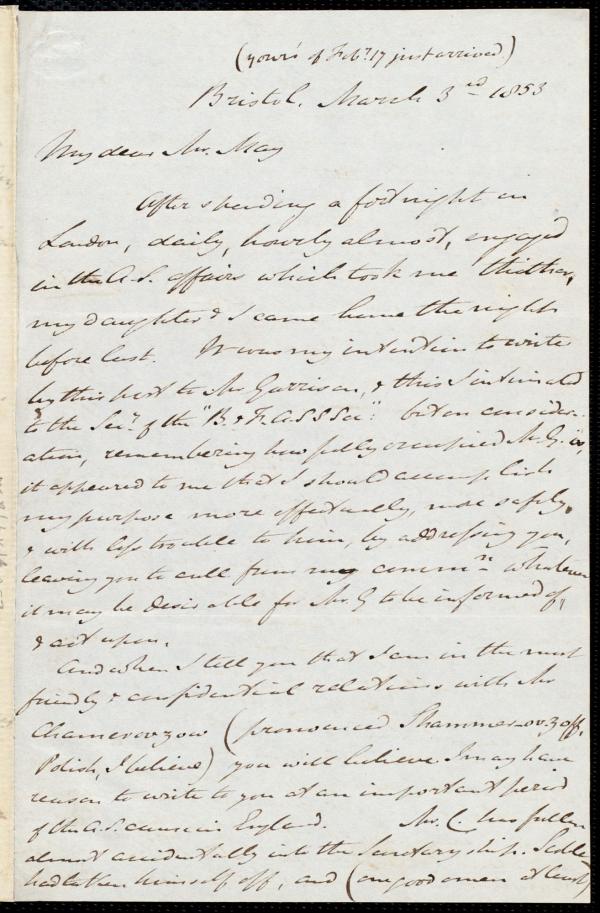 (yours of Feby. 17 just arrived.)
Bristol, March 3rd 1853
My dear Mr. May
After spending a fortnight in
London, daily, hourly almost, engaged
in the A.S. affairs which took me thither,
my daughter & I came home the night
before last. It was my intention to write
by this post to Mr Garrison, & this I intimated
to the Secy. of the "B. & F. A S S Socy": but on consider-
ation, remembering how fully occupied Mr. G. is,
it appeared to me that I should accomplish
my purpose more effectually, more safely,
& with less trouble to him, by addressing you,
leaving you to cull from my commn. whatever
it may be desirable for Mr. G to be informed of,
& act upon.
And when I tell you that I am in the most
friendly & confidential relations with Mr
Chamerovzow (pronounced Shammer-ov-zoff,
Polish, I believe) you will believe I may have
reason to write to you at an important period
of the A.S. cause in England. Mr. C. has fallen
almost accidentally into the Secretaryship.
had taken himself off, and (one good omen at least)